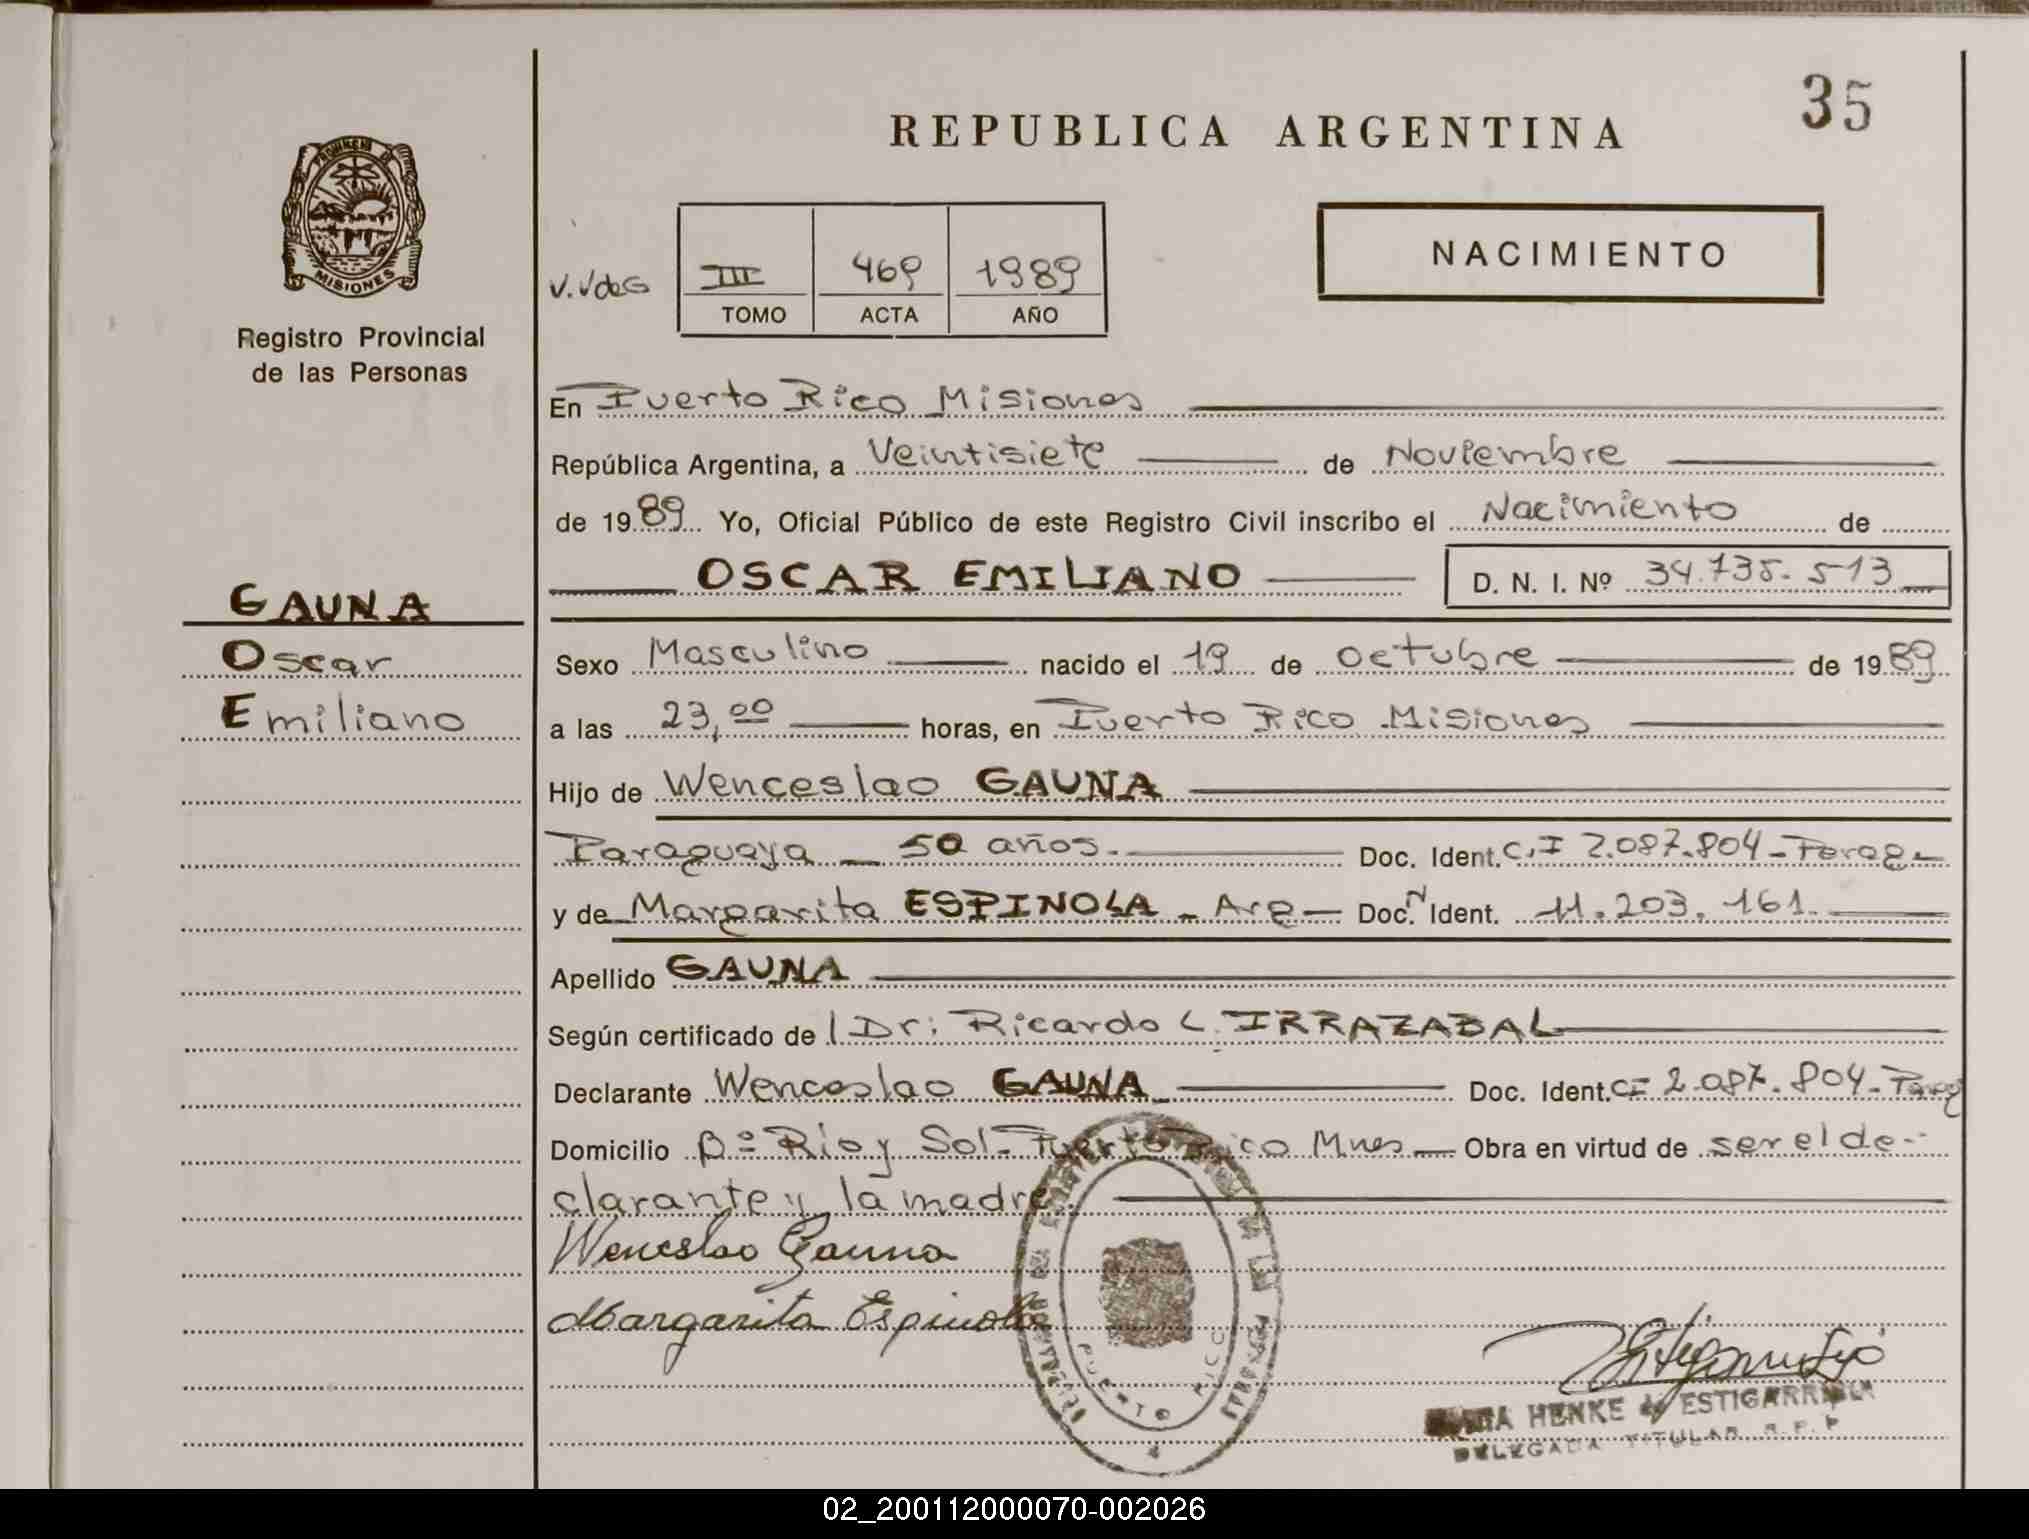 35
REPUBLICA ARGENTINA
PROVINCIA DE
MISIONES
Registro Provincial
de las Personas
NACIMIENTO
V.VdeG
III 469 1989
TOMO ACTA AÑO
En Puerto Rico Misiones
República Argentina, a Veintisiete de Noviembre
de 1989 Yo, Oficial Público de este Registro Civil inscribo el Nacimiento de
OSCAR EMILIANO D. N. I. Nº 34.735.513
GAUNA
Oscar
Emiliano
Sexo Masculino nacido el 19 de octubre de 1989
a las 23,00 horas, en Puerto Rico Misiones
Hijo de Wenceslao GAUNA
Paraguaya - 50 años. Doc. Ident. C.I 2.087.804 - Parag
y de Margarita ESPINOLA - Arg - Doc. N Ident. 11.203.161.
Apellido GAUNA
Según certificado de Dr: Ricardo L. IRRAZABAL
Declarante Wenceslao GAUNA Doc. Ident. CI 2.087.804 - Parag
Domicilio Bº Rio y Sol - Puerto Rico Mnes - Obra en virtud de ser el de-
clarante y la madre.
Wenceslao Gauna
Margarita Espinola
PUERTO RICO
4
HENKE de ESTIGARRIBIA
DELEGADA TITULAR R.P.P
02_200112000070-002026